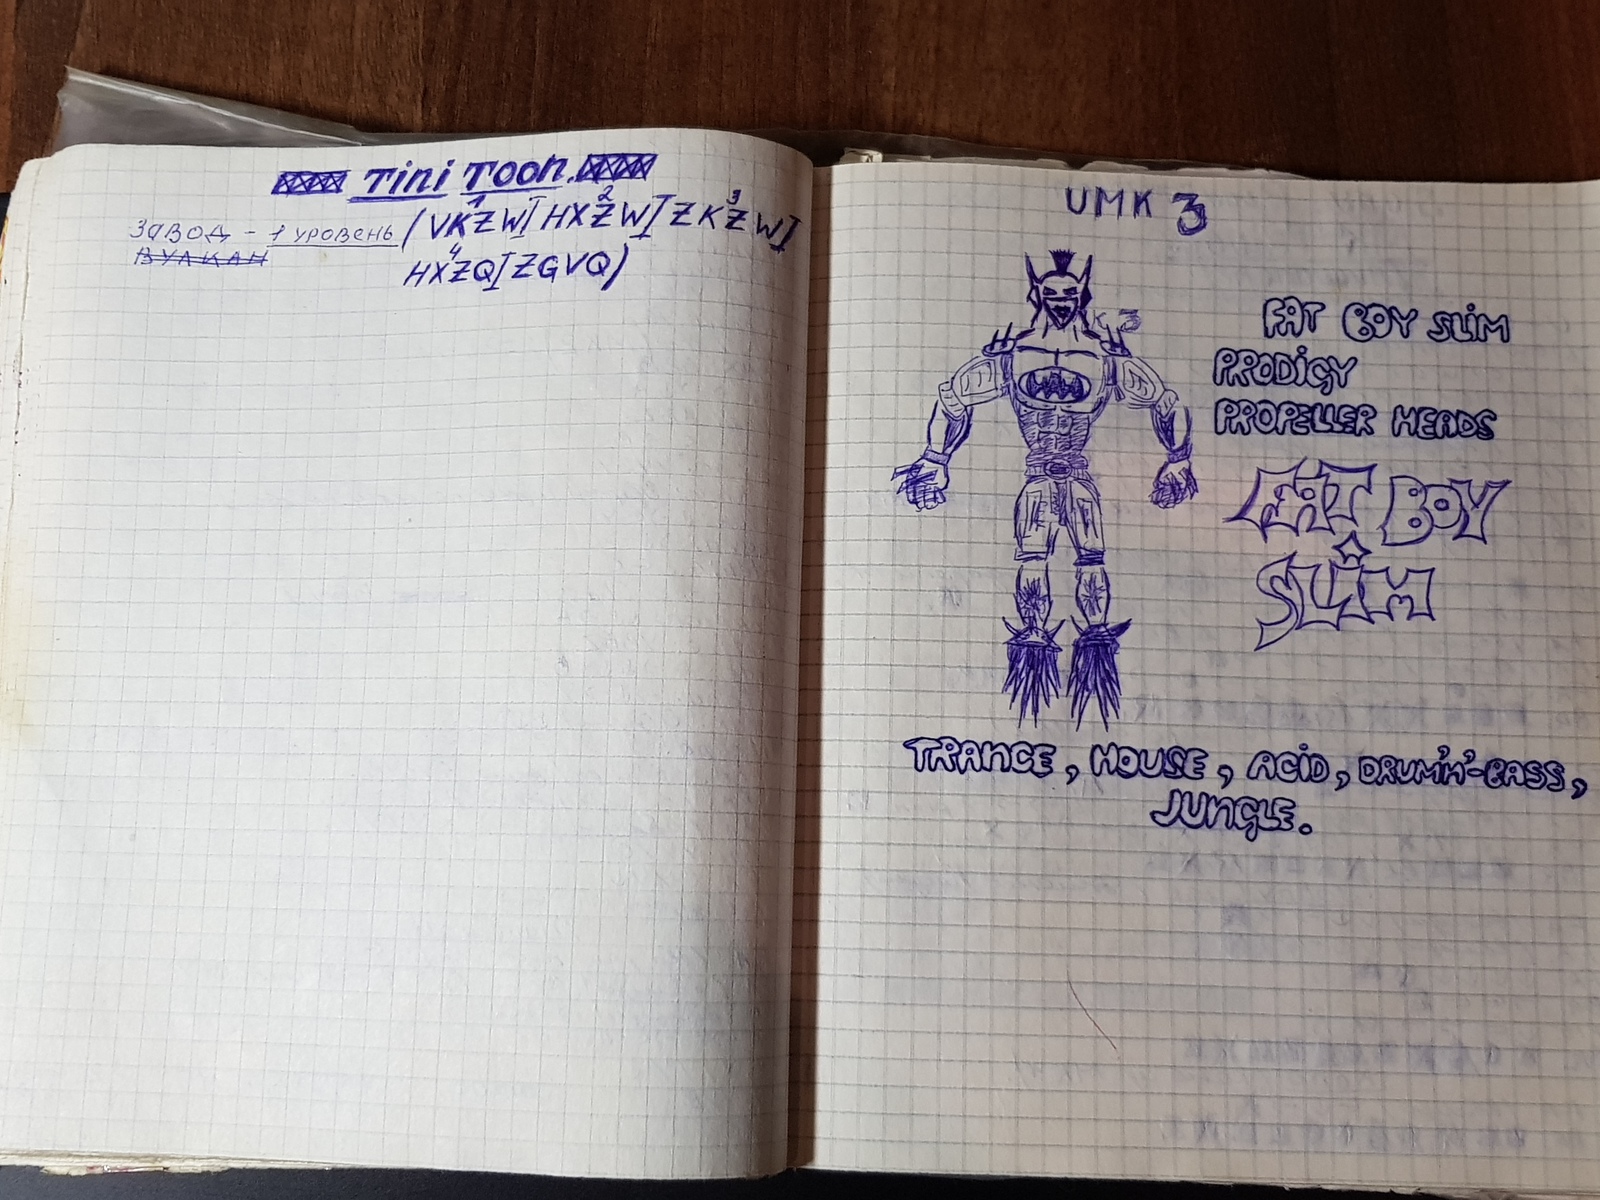 Tini Toon.
ЗАВОД - 1 УРОВЕНЬ (VKZWI HXZWI ZKZWI
1 2 3
ВУЛКАН
4
HXZQI ZGVQ)
UMK 3
K 3
FAT BOY SLiM
PRODiGY
PROPELLER HEADS
FAT BOY
SLiM
TRANCE, HOUSE, ACiD, DRUM'N'-BASS,
JUNGLE.